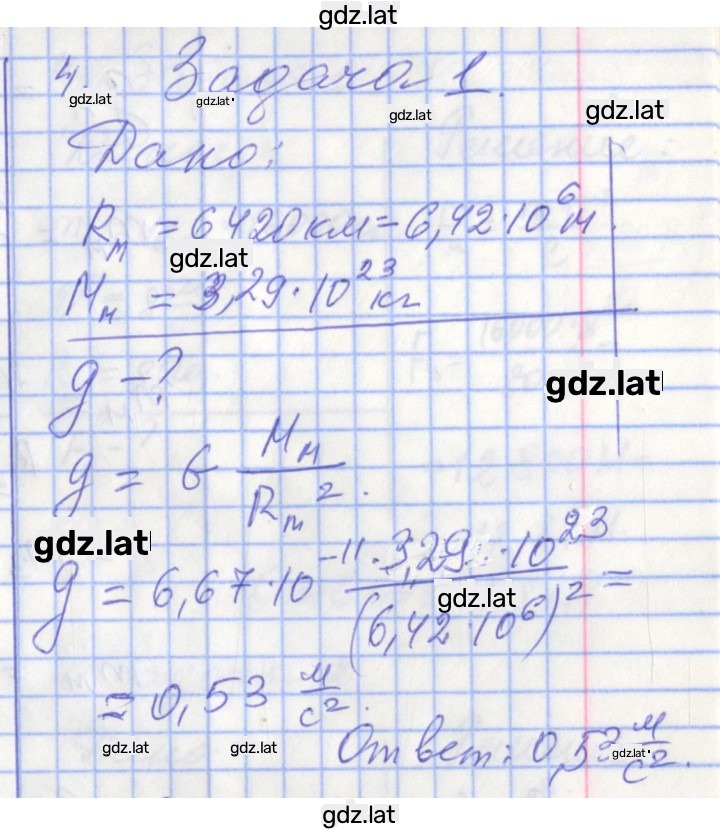 gdz.lat
4. Задача 1.
gdz.lat gdz.lat gdz.lat gdz.lat
Дано:
Rₘ = 6420 км = 6,42·10⁶ м.
gdz.lat
Mₘ = 3,29·10²³ кг
g - ?
gdz.lat
g = G Mₘ / Rₘ².
gdz.lat
g = 6,67·10⁻¹¹ · 3,29·10²³ / (6,42·10⁶)² =
gdz.lat
≈ 0,53 м/с².
gdz.lat gdz.lat
Ответ: 0,53 м/с².
gdz.lat
gdz.lat